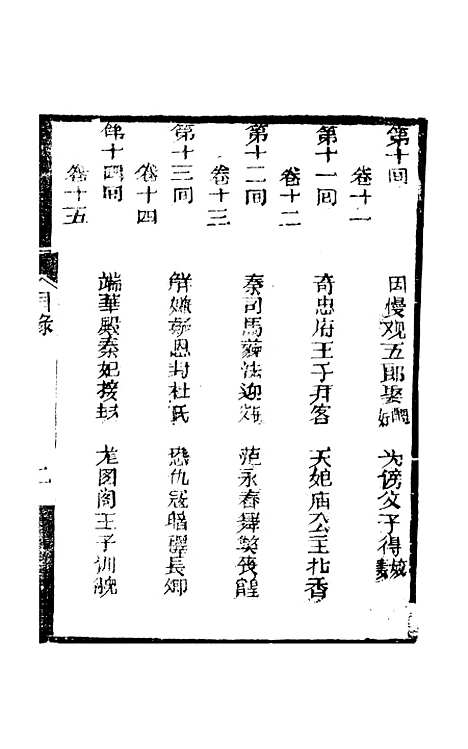 第十回　因慢观五郎娶　为谤父子得
卷十一
第十一回　奇忠府王子开客　天妃庙公主北香
卷十二
第十二回　秦司马　法迎　范永春舞
卷十三
第十三回　解嫌疑恩封杜氏　恐仇冠　釋長卿
卷十四
第十四回　端華殿秦妃接封　龙图阁王子训
卷十五
目錄
二